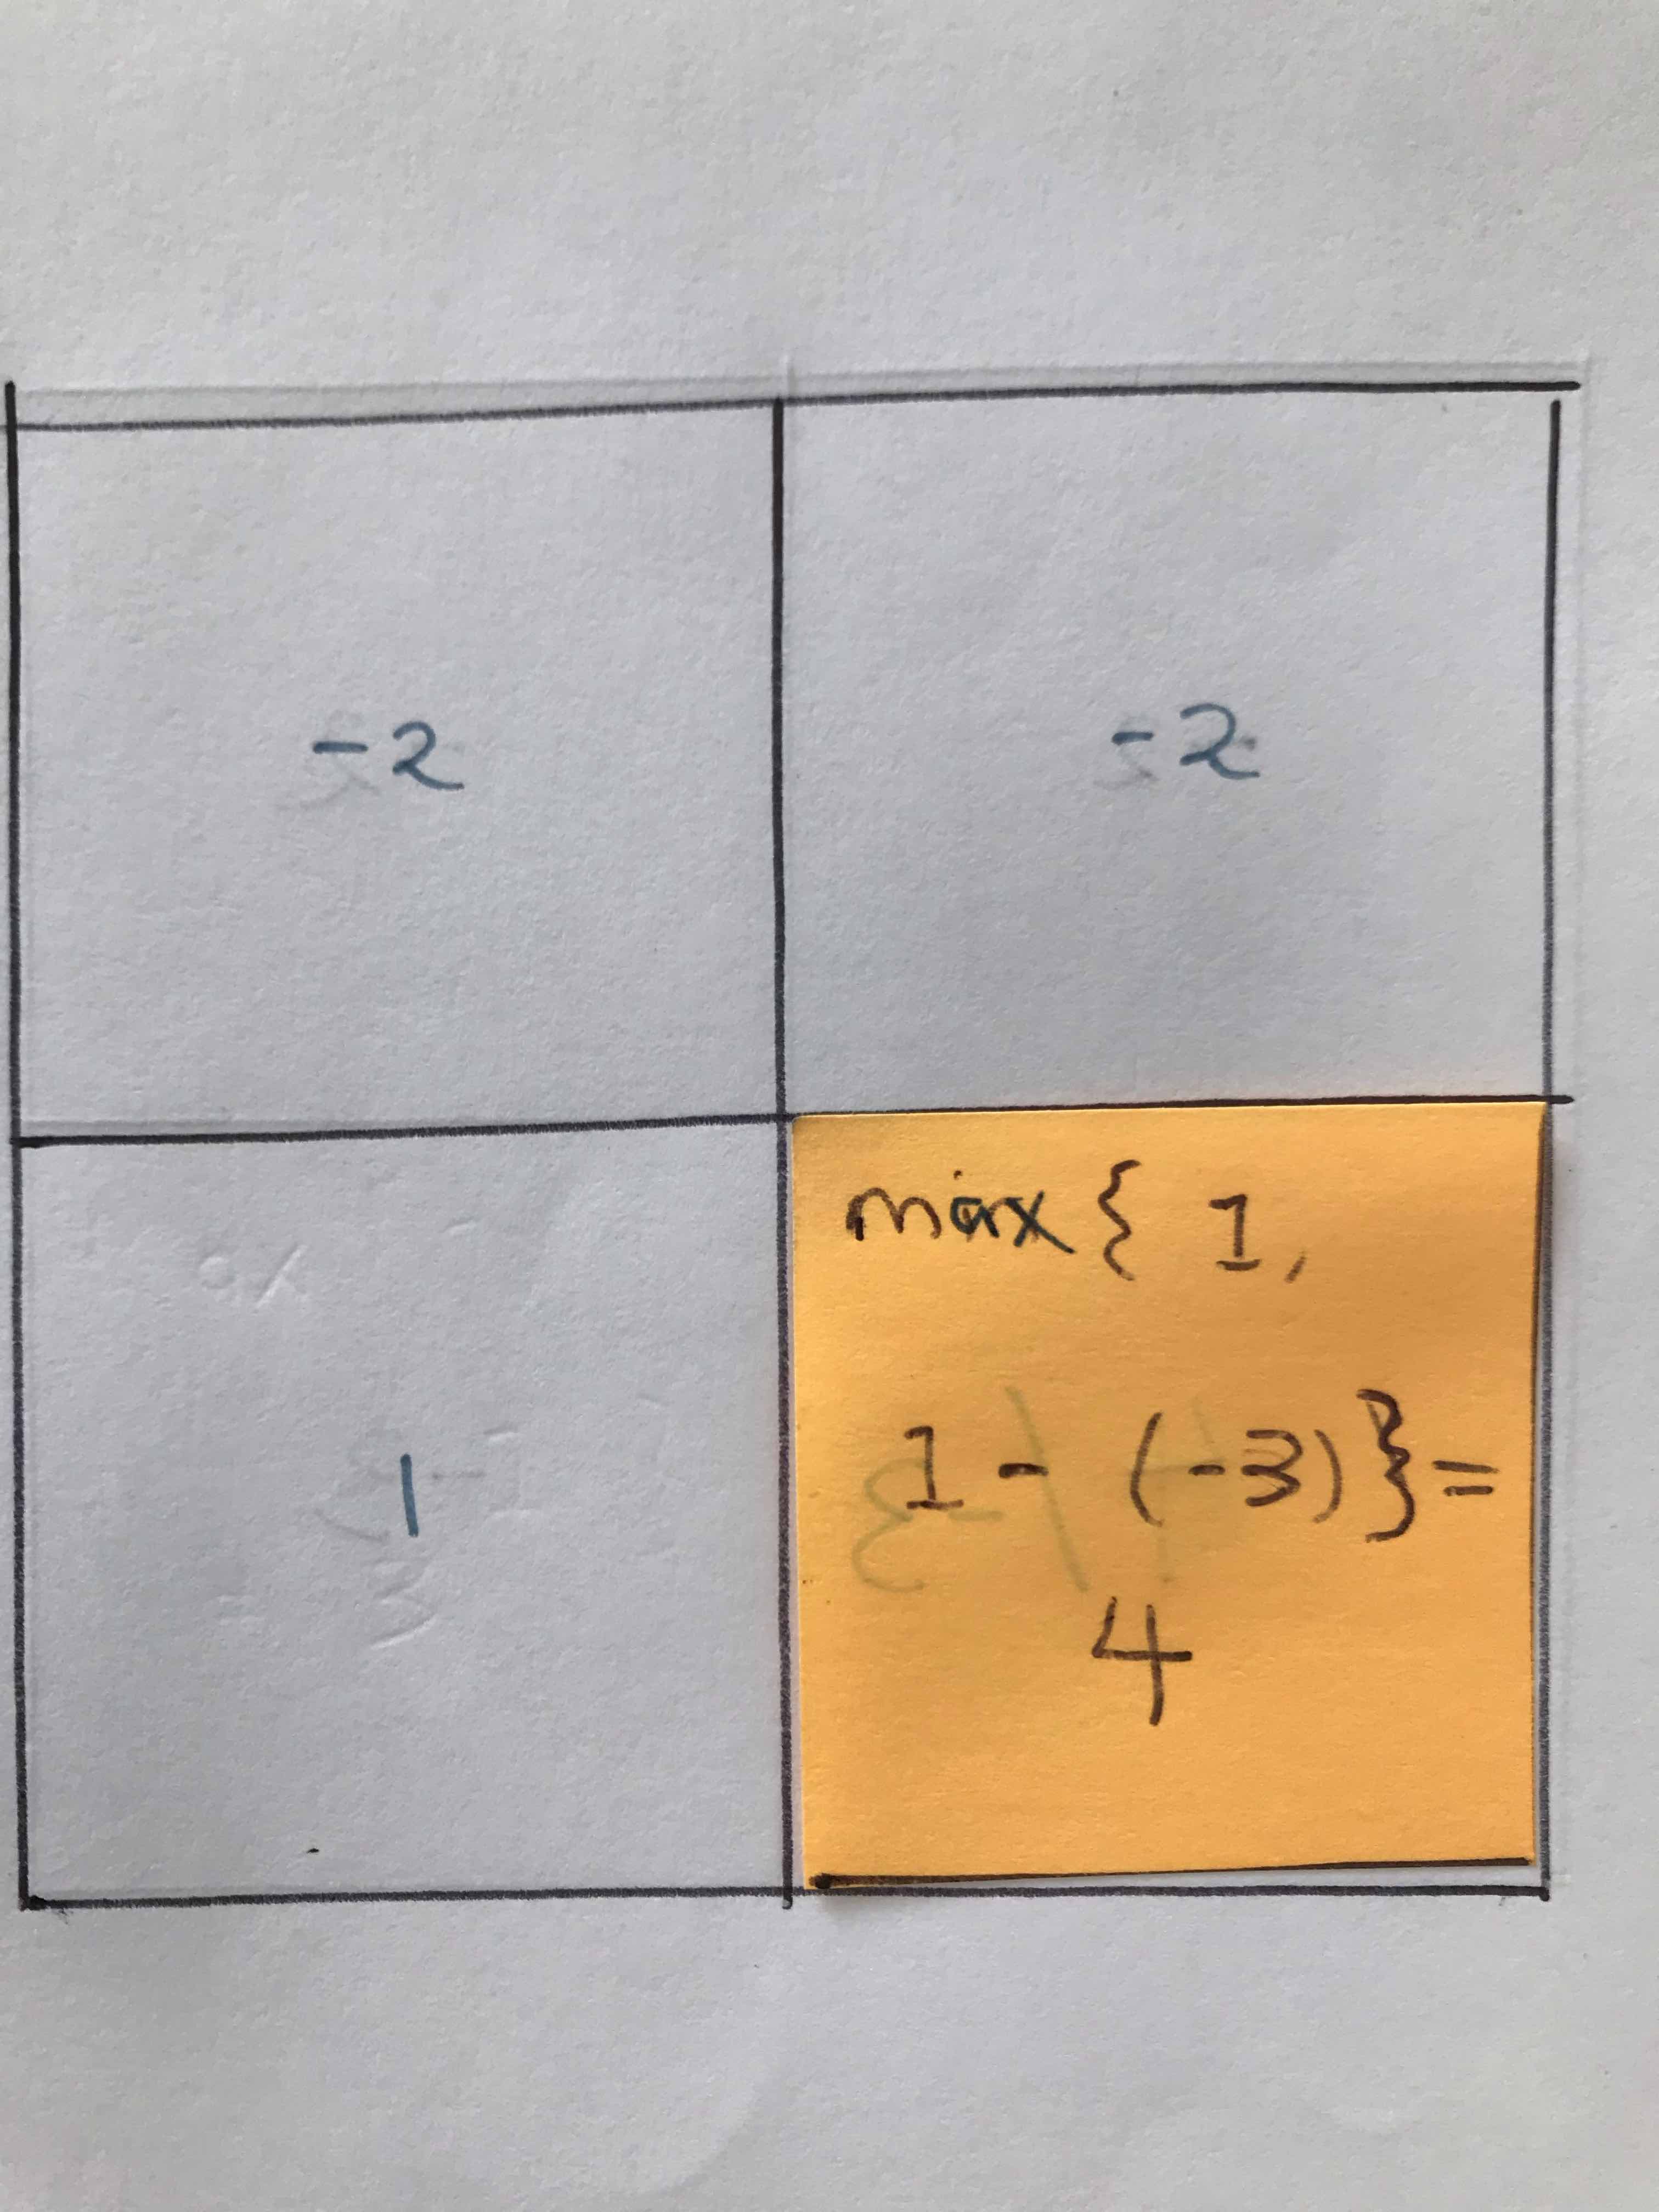 -2
-2
1
max { 1,
1 - (-3) } =
4